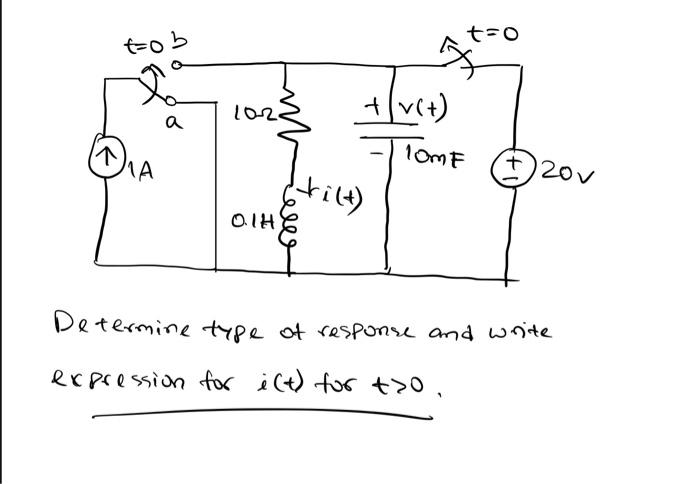 t=0 b
t=0
a
10Ω
+ v(t)
-
10mF
1A
+
-
20v
+ i(t)
0.1H
Determine type of response and write
expression for i(t) for t>0.